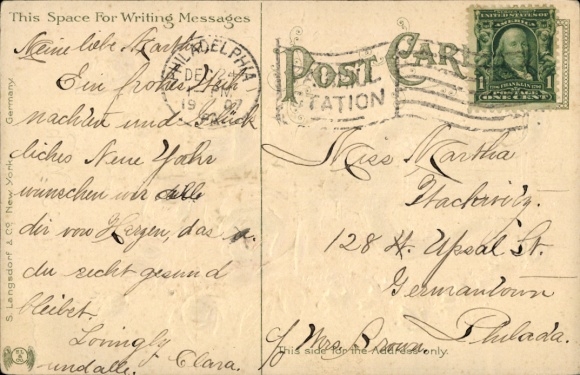 This Space For Writing Messages
Meine liebe Martha
Ein frohes Weih
nachten und Glück
liches Neue Jahr
wünschen wir alle
dir von Herzen, das
du recht gesund
bleibet.
Lovingly
und alle. Clara.
S. Langsdorf & Co., New York. Germany.
PHILADELPHIA
DEC
19
STATION
POST CARD
UNITED STATES OF AMERICA
FRANKLIN
1 POSTAGE 1
ONE CENT
Miss Martha
128 W. Upsal St.
Germantown
Philada.
c/o Mrs. Brown.
This side for the Address only.